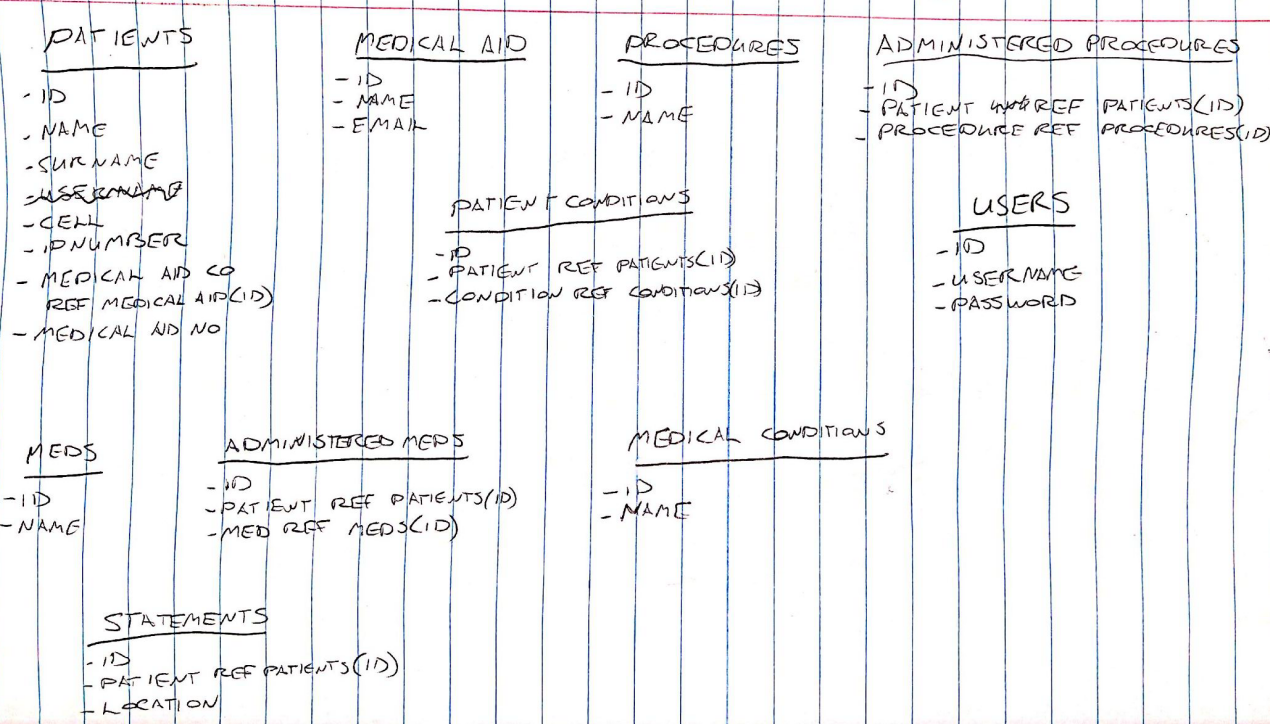 PATIENTS
- ID
- NAME
- SURNAME
- USERNAME
- CELL
- IDNUMBER
- MEDICAL AID CO
REF MEDICAL AID(ID)
- MEDICAL AID NO
MEDICAL AID
- ID
- NAME
- EMAIL
PROCEDURES
- ID
- NAME
ADMINISTERED PROCEDURES
- ID
- PATIENT REF PATIENTS(ID)
- PROCEDURE REF PROCEDURES(ID)
PATIENT CONDITIONS
- ID
- PATIENT REF PATIENTS(ID)
- CONDITION REF CONDITIONS(ID)
USERS
- ID
- USERNAME
- PASSWORD
MEDS
- ID
- NAME
ADMINISTERED MEDS
- ID
- PATIENT REF PATIENTS(ID)
- MED REF MEDS(ID)
MEDICAL CONDITIONS
- ID
- NAME
STATEMENTS
- ID
- PATIENT REF PATIENTS(ID)
- LOCATION